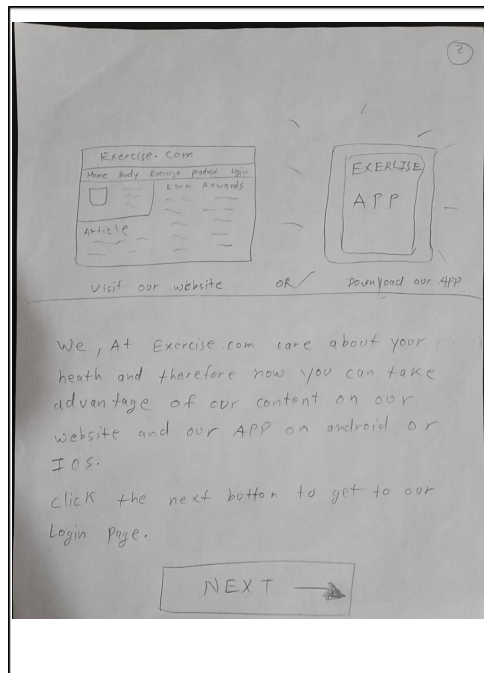 2
Exercise.com
Home Body Exercise product Login
Earn Awards
Article
EXERCISE
APP
Visit our website OR Download our APP
We, At Exercise.com care about your
heath and therefore now you can take
advantage of our content on our
website and our APP on android or
IOS.
click the next botton to get to our
Login page.
NEXT